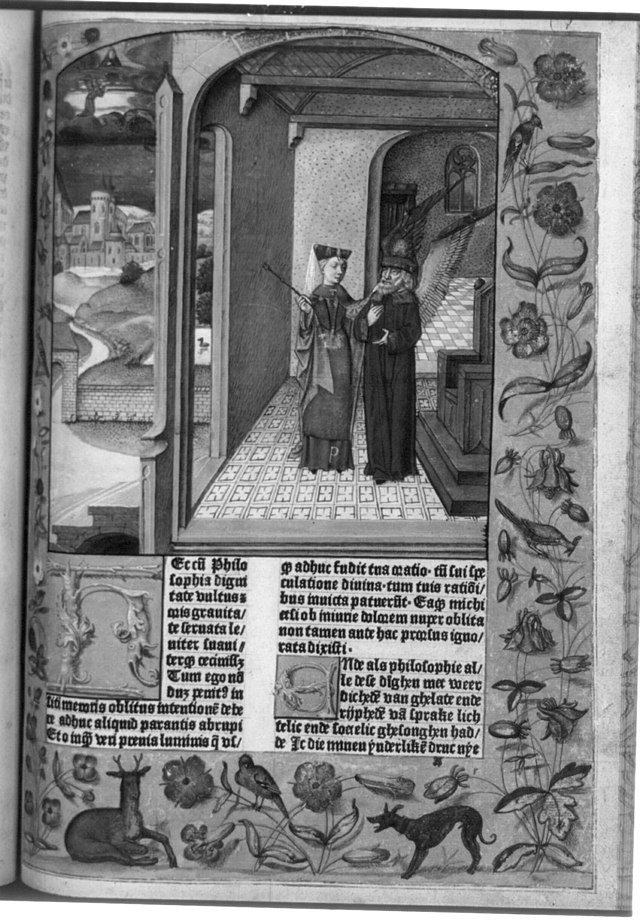 HEc cū Philo
sophia digni
tate vultus ⁊
oris grauita/
te seruata le/
niter suaui/
terqꝫ cecinissꝫ
Tum ego nō
dūꝫ penitꝰ in
siti meroris oblitus intentionē de be
te adhuc aliquid parantis abrupi
Et o inqͣ veri luminis q̄ vs/
qꝫ adhuc fudit tua oratio· cū sui spe
culatione diuina· tum tuis ratiōi/
bus inuicta patuerūt· Eaqꝫ michi
etsi ob iniurie dolorem nuper oblita
non tamen ante hac prorsus igno/
rata dixisti·
ENde als philosophie al/
le dese dīghen met weer
dichedē van ghelate ende
rijphedē vā sprake lich
telic ende soetelic ghesonghen had/
de Ic die minen ynderlikē druc nye